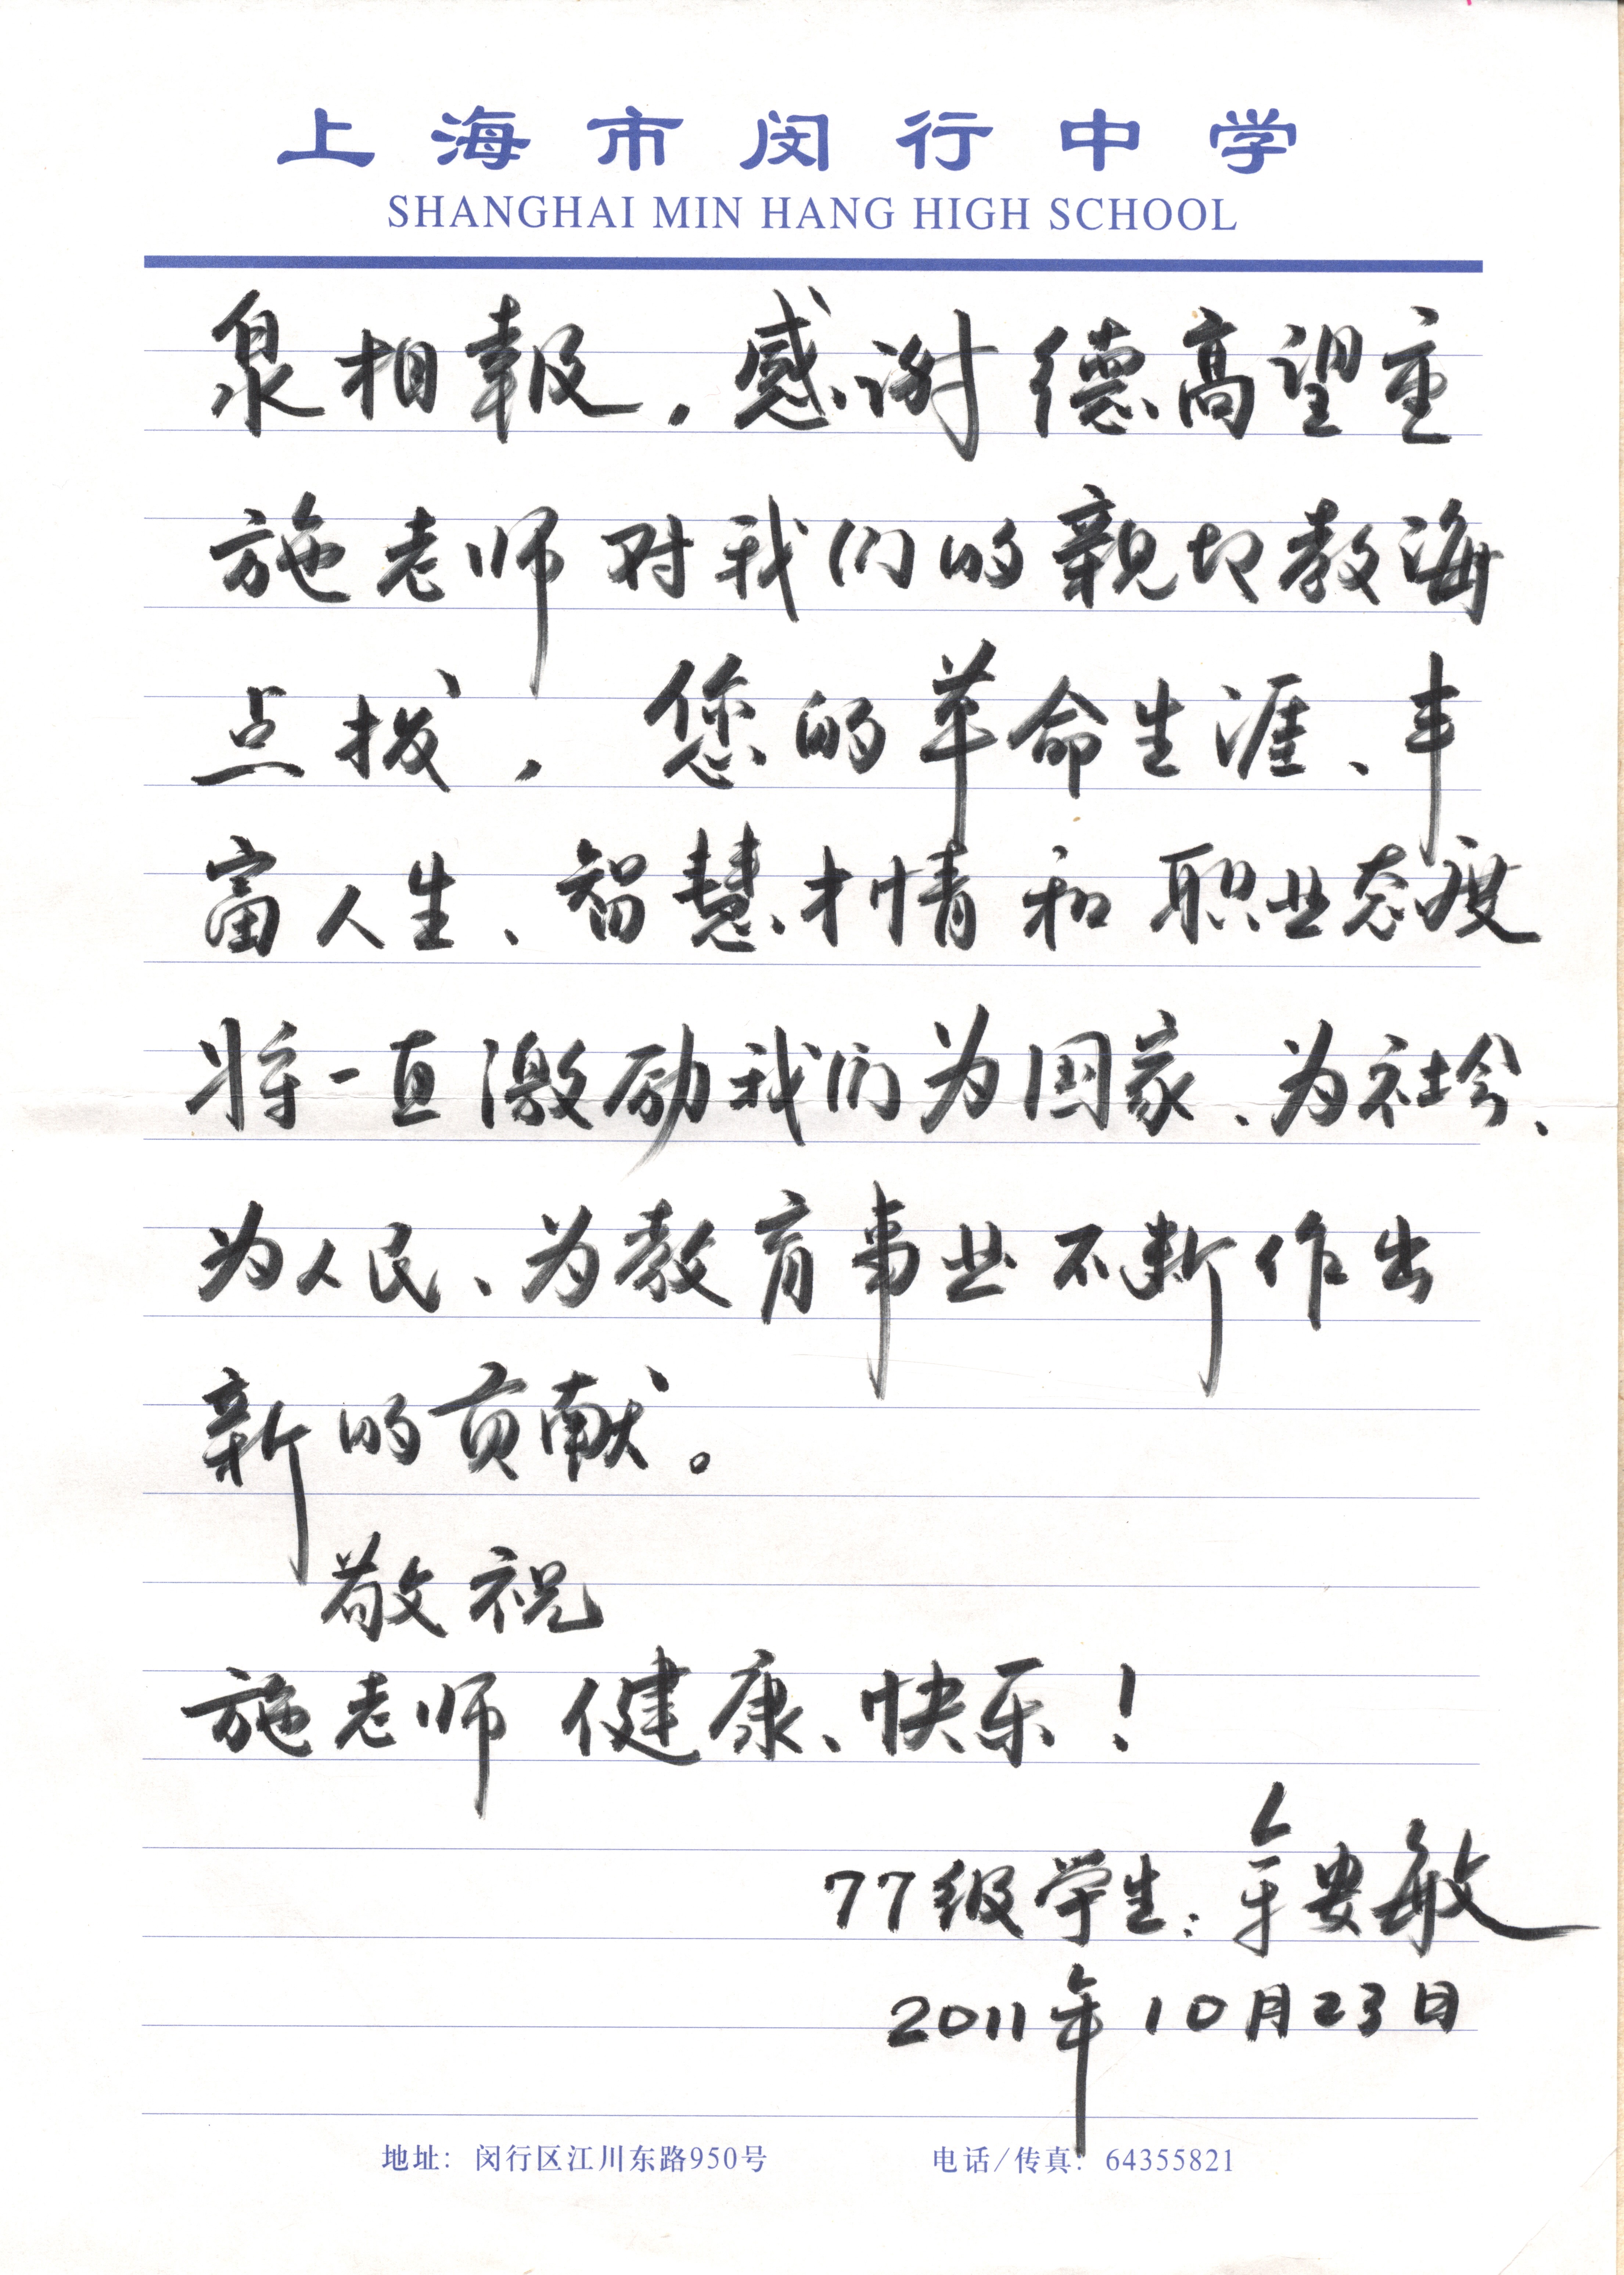 上海市闵行中学
SHANGHAI MIN HANG HIGH SCHOOL
泉相報，感谢德高望重
施老师对我们的親切教海
点拨，您的革命生涯、丰
富人生、智慧、才情和职业态度
将一直激励我们为国家、为社会、
为人民、为教育事业不断作出
新的贡献。
敬祝
施老师健康、快乐！
77级学生：安敏
2011年10月23日
地址：闵行区江川东路950号
电话/传真：64355821